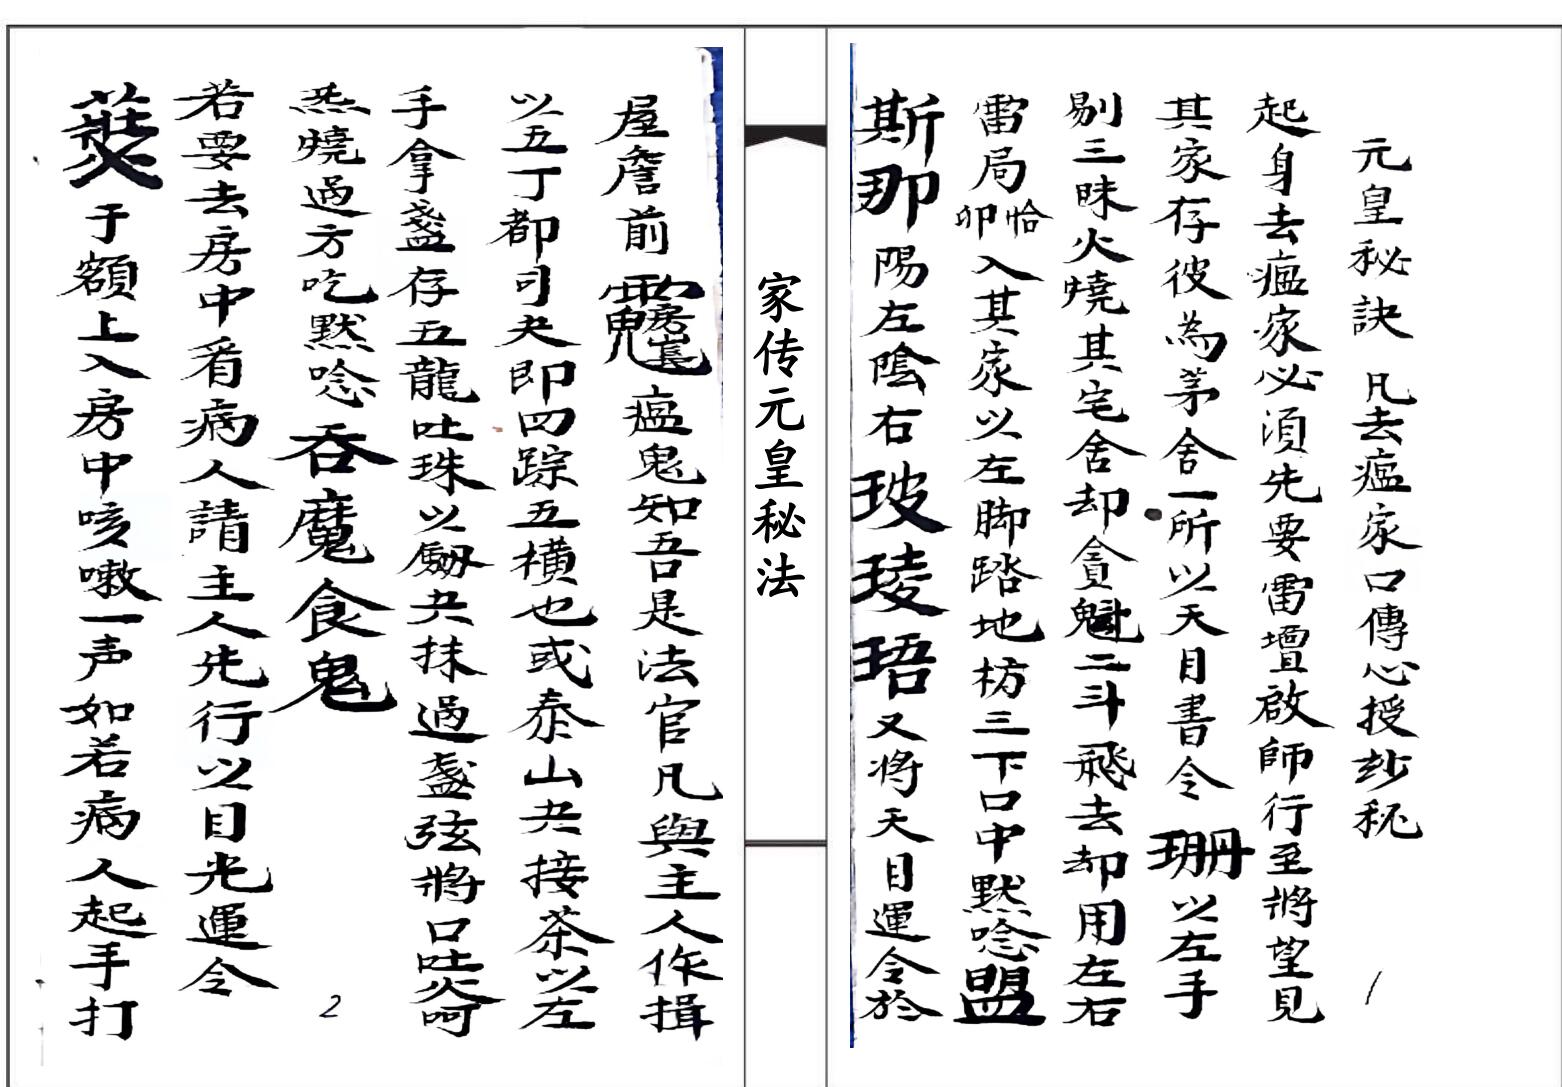 元皇秘訣 凡去瘟家口傳心授妙秘
起身去瘟家必須先要雷壇啟師行至將望見
其家存彼為茅舍一所以天目書令珊以左手
剔三昧火燒其宅舍却貪魁二斗飛去却用左右
雷局恰卯入其家以左脚踏地枋三下口中黙唸盟
斯那陽左陰右玻琖珸又將天目運令於
1
家传元皇秘法
屋詹前瘟鬼知吾是法官凡與主人作揖
以五丁都司夬即四踪五橫也或泰山夬接茶以左
手拿盞存五龍吐珠以劔夬抹過盞弦將口吐火呵
炁燒過方吃黙唸吞魔食鬼
若要去房中看病人請主人先行以目光運令
于額上入房中咳嗽一声如若病人起手打
2